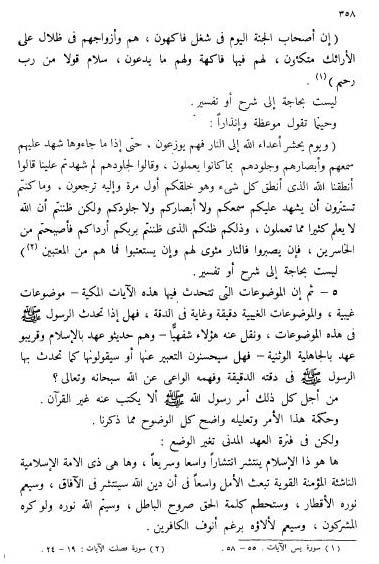 ٣٥٨
( إن أصحاب الجنة اليوم فى شغل فاكهون ، هم وأزواجهم فى ظلال على
الأرائك متكئون ، لهم فيها فاكهة ولهم ما يدعون ، سلام قولا من رب
رحيم )(١) .
ليست بحاجة إلى شرح أو تفسير .
وحينما تقول موعظة وإنذاراً :
( ويوم يحشر أعداء الله إلى النار فهم يوزعون ، حتى إذا ما جاءوها شهد عليهم
سمعهم وأبصارهم وجلودهم بما كانوا يعملون ، وقالوا لجلودهم لم شهدتم علينا قالوا
أنطقنا الله الذى أنطق كل شىء وهو خلقكم أول مرة وإليه ترجعون ، وما كنتم
تستترون أن يشهد عليكم سمعكم ولا أبصاركم ولا جلودكم ولكن ظننتم أن الله
لا يعلم كثيرا مما تعملون ، وذلكم ظنكم الذى ظننتم بربكم أرداكم فأصبحتم من
الخاسرين ، فإن يصبروا فالنار مثوى لهم وإن يستعتبوا فما هم من المعتبين )(٢)
ليست بحاجة إلى شرح أو تفسير .
٥ – ثم إن الموضوعات التى تتحدث فيها هذه الآيات المكية – موضوعات
غيبية ، والموضوعات الغيبية دقيقة وغاية فى الدقة ، فهل إذا تحدث الرسول ﷺ
فى هذه الموضوعات ، ونقل عنه هؤلاء شفهيًّا – وهم حديثو عهد بالإسلام وقريبو
عهد بالجاهلية الوثنية – فهل سيحسنون التعبير عنها أو سيقولونها كما تحدث بها
الرسول ﷺ فى دقته الدقيقة وفهمه الواعى عن الله سبحانه وتعالى ؟
من أجل كل ذلك أمر رسول الله ﷺ ألا يكتب عنه غير القرآن .
وحكمة هذا الأمر وتعليله واضح كل الوضوح مما ذكرنا .
ولكن فى فترة العهد المدنى تغير الوضع :
ها هو ذا الإسلام ينتشر انتشاراً واسعا وسريعاً ، وها هى ذى الامة الإسلامية
الناشئة المؤمنة القوية تبعث الأمل واسعا فى أن دين الله سينتشر فى الآفاق ، وسيعم
نوره الأقطار ، وستحطم كلمة الحق صروح الباطل ، وسيتم الله نوره ولو كره
المشركون ، وسيعم لألاؤه برغم أنوف الكافرين .
(١) سورة يس الآيات . ٥٥ – ٥٨ .
(٢) سورة فصلت الآيات : ١٩ – ٢٤ .